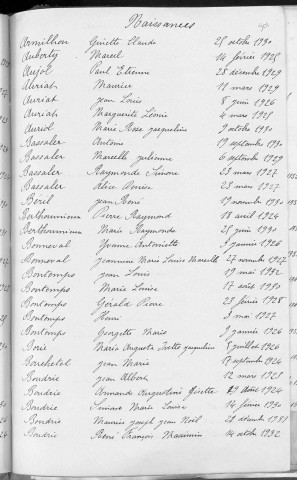 Naissances
Armilhon Ginette Claude 25 octobre 1930
Auberty Marcel 14 février 1925
Aujol Paul Etienne 28 décembre 1929
Auriat Maurice 18 mars 1929
Auriat Jean Louis 8 juin 1926
Auriat Marguerite Léonie 4 mars 1925
Auriol Marie Rose Jacqueline 9 octobre 1930
Bassaler Antoine 19 septembre 1930
Bassaler Marcelle Julienne 6 septembre 1929
Bassaler Raymonde Simone 23 mars 1927
Bassaler Alice Denise 23 mars 1927
Bérel Jean René 19 novembre 1930
Berthoumieux Pierre Raymond 18 avril 1924
Berthoumieux Marie Raymonde 25 juin 1930
Bonneval Yvonne Antoinette 3 janvier 1926
Bonneval Jeannine Marie Louise Marcelle 27 novembre 1927
Bontemps Jean Louis 19 mai 1932
Bontemps Marie Louise 17 août 1930
Bontemps Gérald Pierre 23 février 1928
Bontemps Henri 3 mai 1927
Bontemps Georgette Marie 9 janvier 1926
Borie Maria Augusta Yvette Jacqueline 5 juillet 1926
Borchetel Jean Marie 17 septembre 1926
Boudrie Jean Albert 12 mars 1921
Boudrie Armande Augustine Ginette 29 août 1924
Boudrie Simone Marie Louise 14 février 1930
Boudrie Maurice Joseph Jean Noël 21 décembre 1931
Boudrie René François Maximin 14 octobre 1932